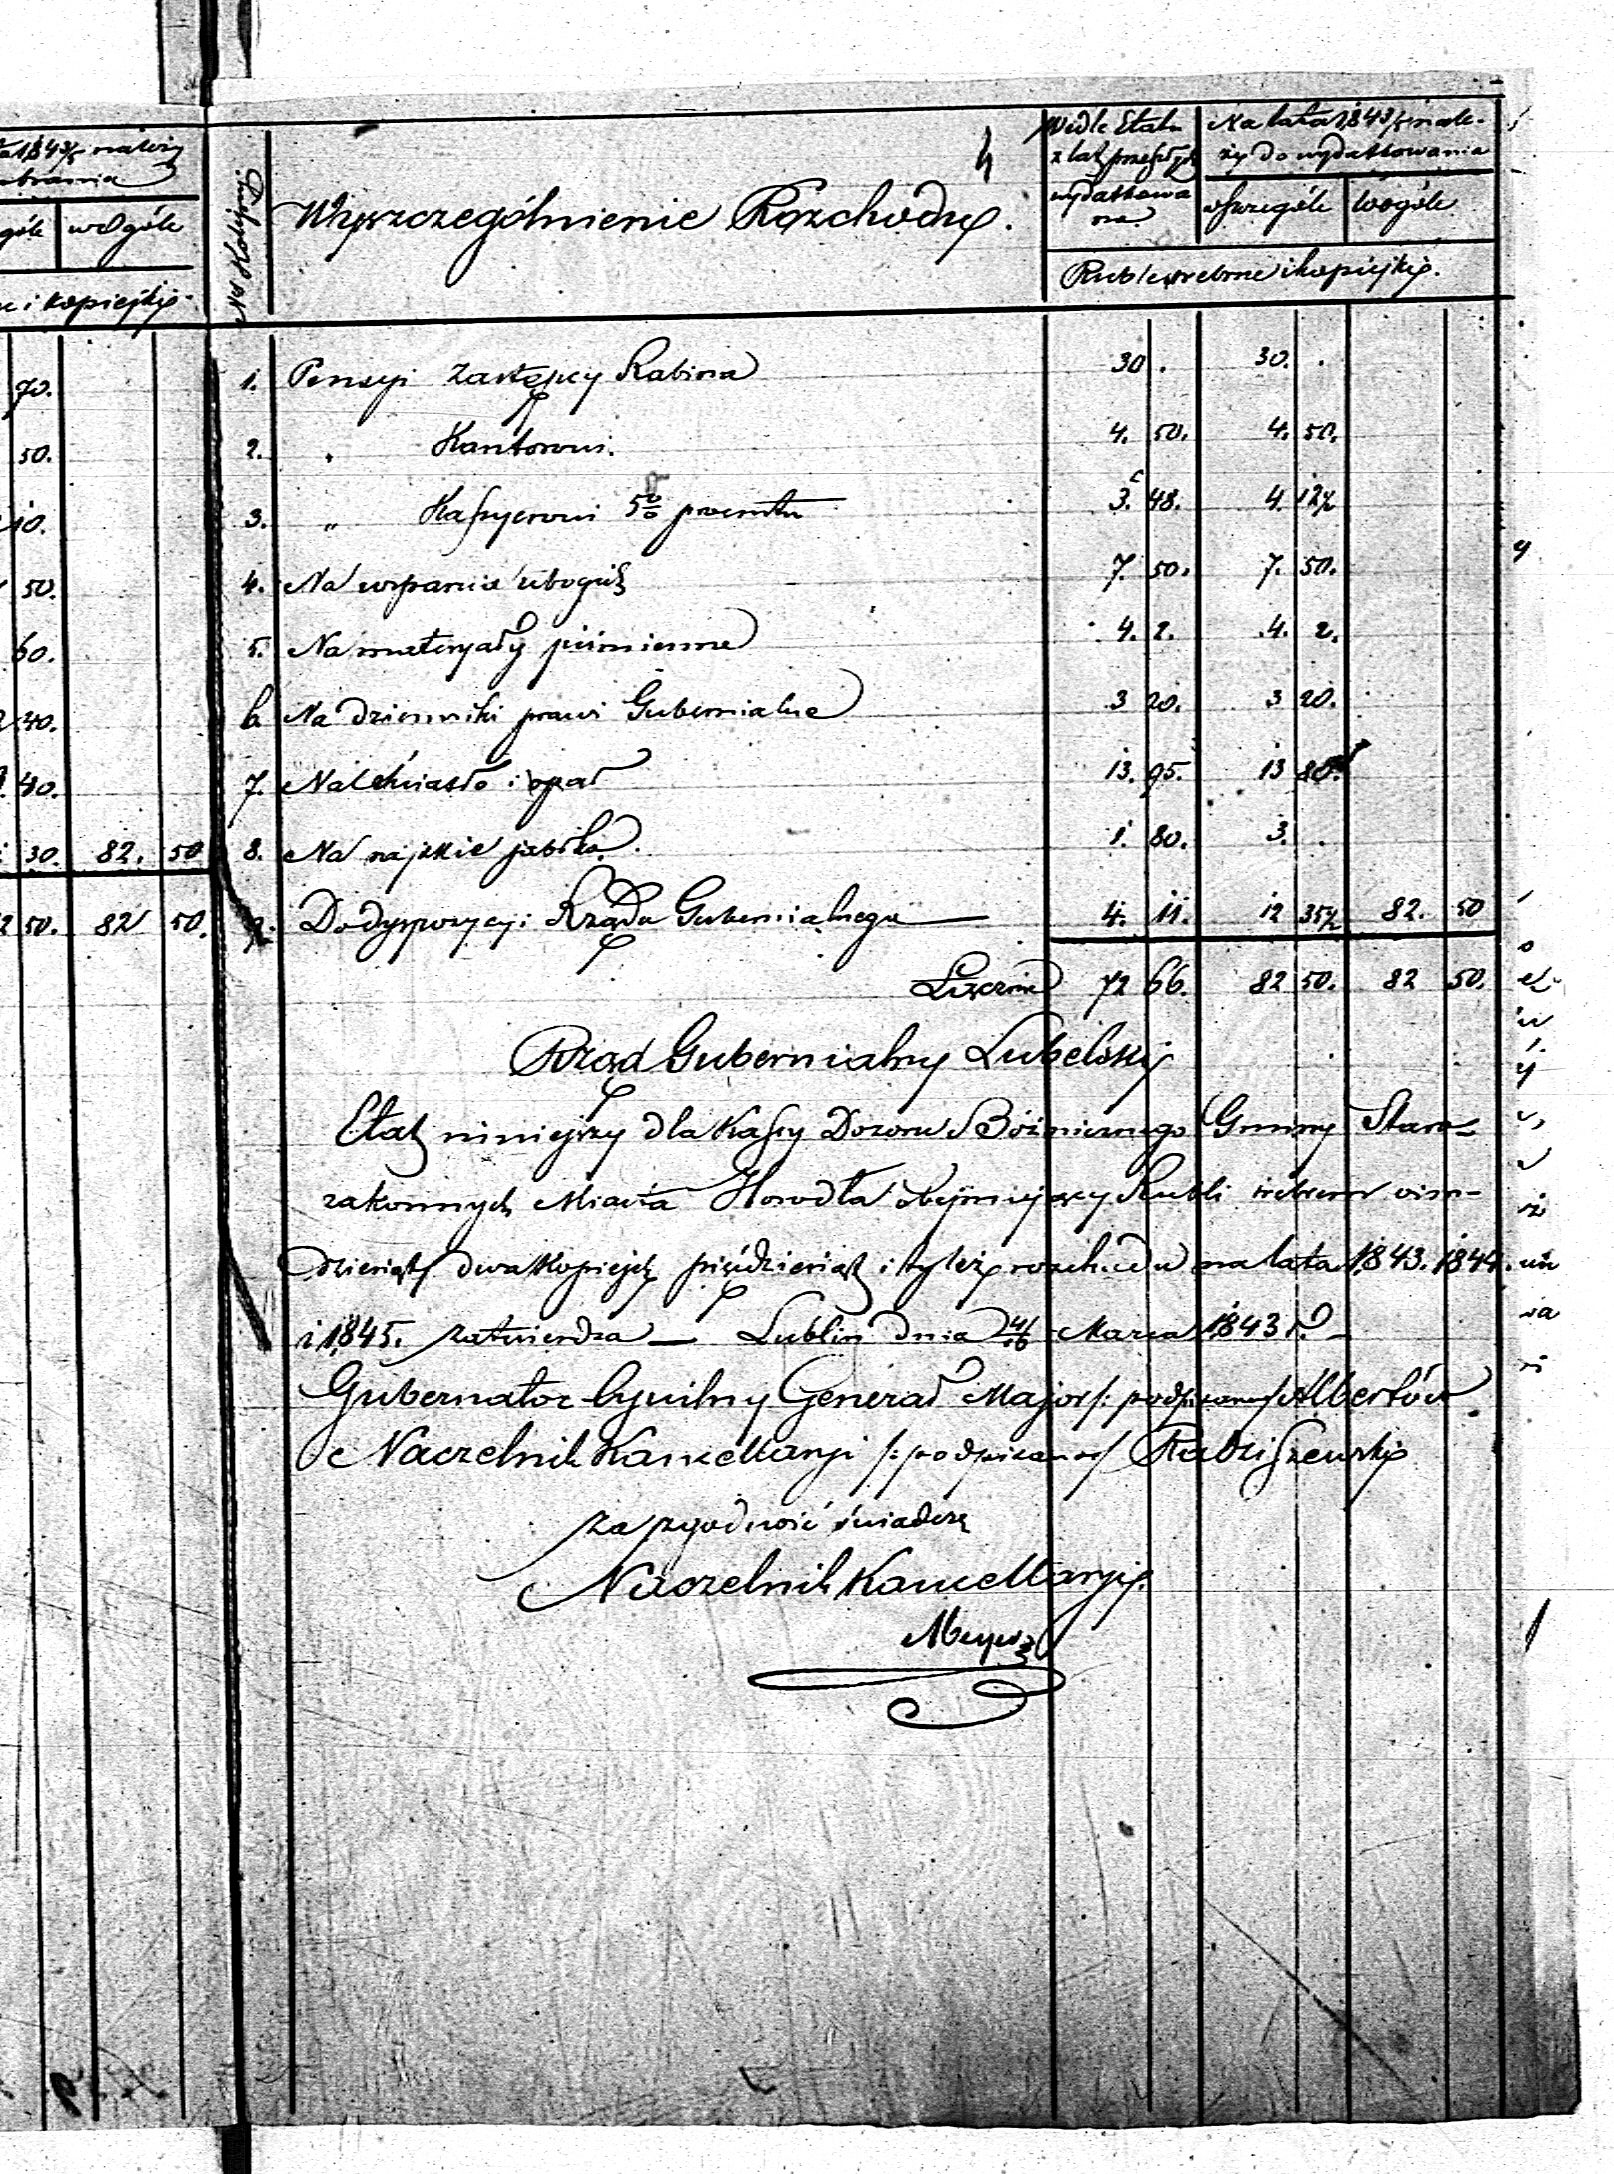 a 1843/5 należy
brania
góle wogóle
e i kopiejki.
70.
50.
10.
50.
60.
40.
40.
30. 82. 50
2 50. 82 50.
4
No Kolejny.
Wyszczególnienie Rozchodu.
Wedle Etatu z lat przeszłych wydatkowano
Na lata 1843/5 należy do wydatkowania
wszczególe wogóle
Ruble srebrne i kopiejki.
1. Pensyi Zastępcy Rabina 30 . 30. .
2. " Kantorowi. 4. 50. 4. 50.
3. " Kassyerowi 5% procentu 3. 48. 4. 12½
4. Na wsparcie ubogich 7. 50. 7. 50.
5. Na materyały piśmienne 4. 2. 4. 2.
6 Na dzienniki praw i Gubernialne 3 20. 3 20.
7. Na światło i opał 13. 95. 13 80.
8. Na rajskie jabłka. 1. 80. 3. .
9. Do dyspozycyi Rządu Gubernialnego 4. 11. 12 35½ 82. 50
Łącznie 72 66. 82 50. 82 50.
Rząd Gubernialny Lubelski
Etat niniejszy dla Kassy Dozoru Bóżnicznego Gminy Staro-
zakonnych Miasta Horodła obejmujący Rubli srebrem ośm-
dziesiąt dwa Kopiejek pięćdziesiąt i tyleż rozchodu na lata 1843. 1844.
i 1845. zatwierdza — Lublin dnia 4/16 Marca 1843 r.
Gubernator Cywilny Generał Major /: podpisano / Albertów
Naczelnik Kancellaryi /: podpisano / Radziszewski
Za zgodność świadczę
Naczelnik Kancellaryi.